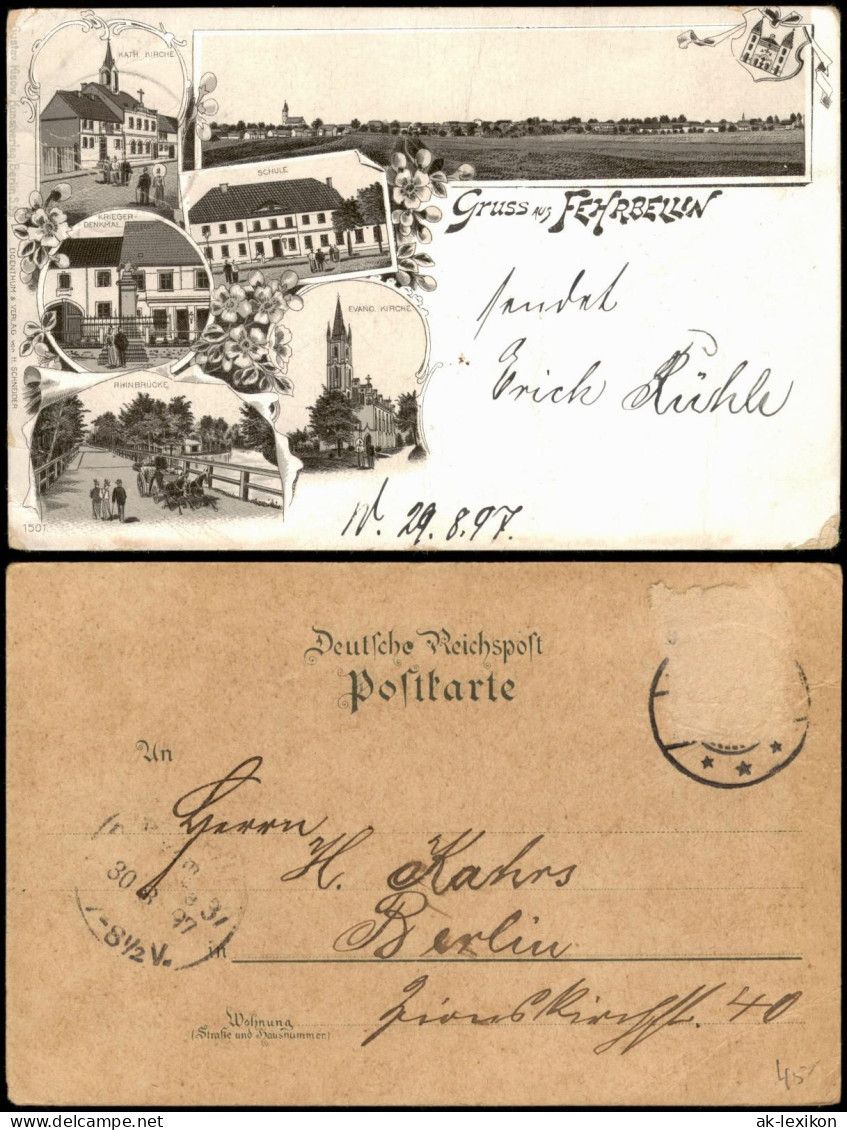 KATH. KIRCHE
SCHULE
KRIEGER-
DENKMAL
EVANG. KIRCHE
RHINBRÜCKE
1501
EIGENTHUM & VERLAG von H. SCHNEIDER
Gruss aus FEHRBELLIN
sendet
Erich Rühle
W. 29.8.97.
Deutsche Reichspost
Postkarte
An
Herrn
H. Kahrs
in Berlin
Zionskirchstr. 40
Wohnung
(Straße und Hausnummer)
30 8 97
7-8½V.
45
www.ansichtskarten-lexikon.de
ak-lexikon.com